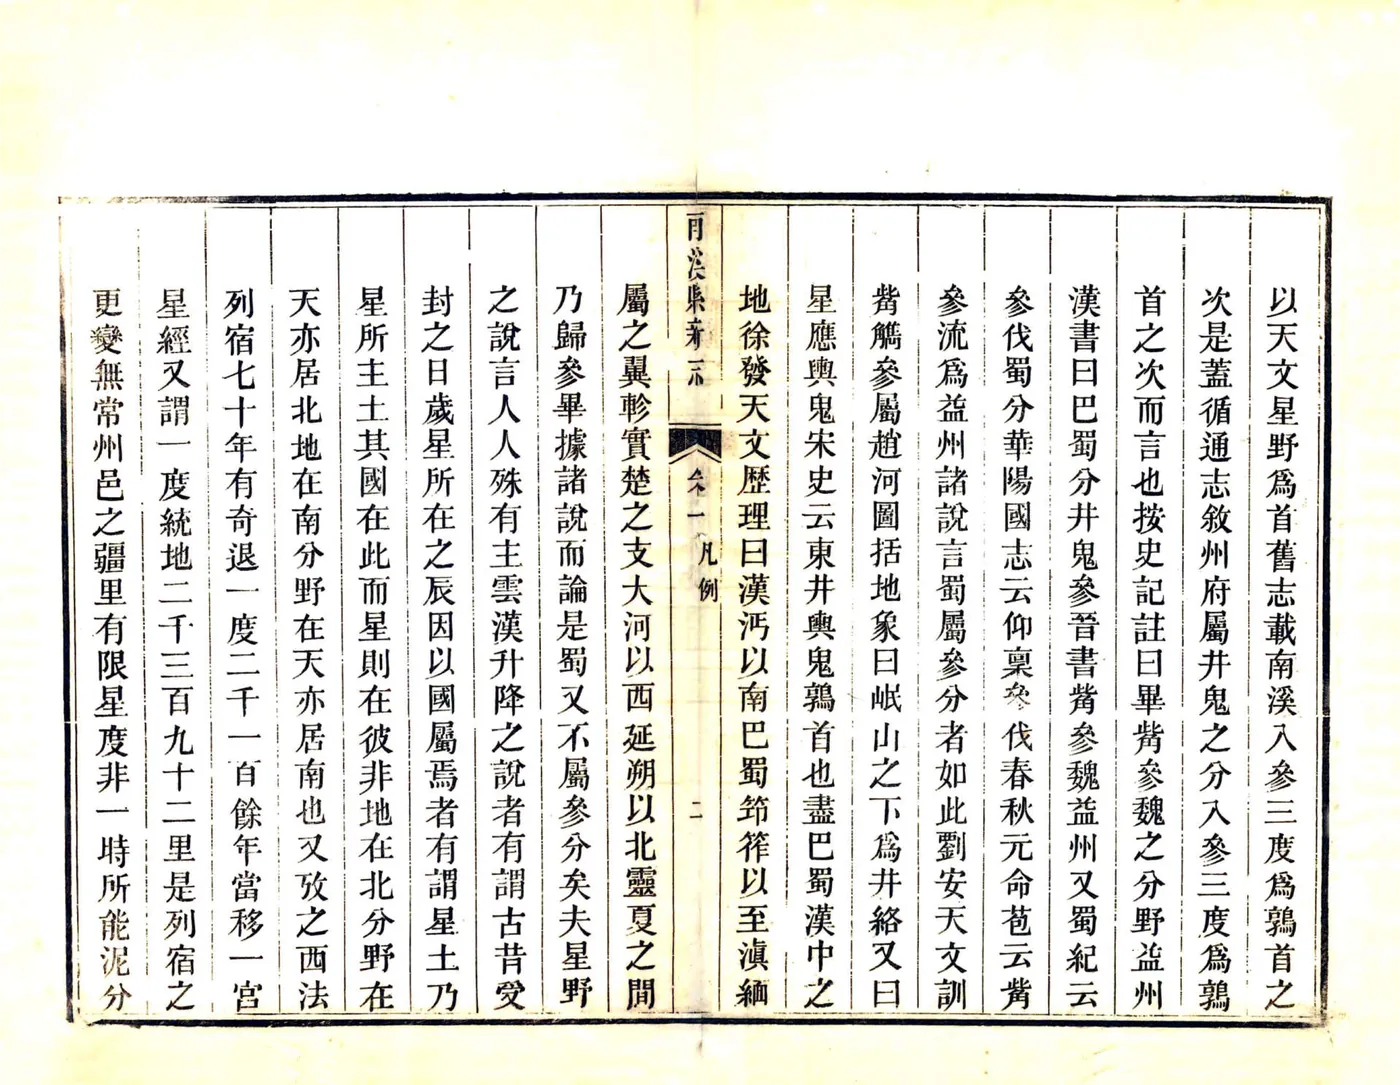 以天文星野爲首舊志載南溪入參三度爲鶉首之
次是蓋循通志敘州府屬井鬼之分入參三度爲鶉
首之次而言也按史記註曰畢觜參魏之分野益州
漢書曰巴蜀分井鬼參晉書觜參魏益州又蜀紀云
參伐蜀分華陽國志云仰稟參伐春秋元命苞云觜
參流爲益州諸說言蜀屬參分者如此劉安天文訓
觜觿參屬趙河圖括地象曰岷山之下爲井絡又曰
星應輿鬼宋史云東井輿鬼鶉首也盡巴蜀漢中之
地徐發天文歷理曰漢沔以南巴蜀笻筰以至滇緬
南溪縣新志 卷一 凡例 二
屬之翼軫實楚之支大河以西延朔以北靈夏之間
乃歸參畢據諸說而論是蜀又不屬參分矣夫星野
之說言人人殊有主雲漢升降之說者有謂古昔受
封之日歲星所在之辰因以國屬焉者有謂星土乃
星所主土其國在此而星則在彼非地在北分野在
天亦居北地在南分野在天亦居南也又攷之西法
列宿七十年有奇退一度二千一百餘年當移一宮
星經又謂一度統地二千三百九十二里是列宿之
更變無常州邑之疆里有限星度非一時所能泥分